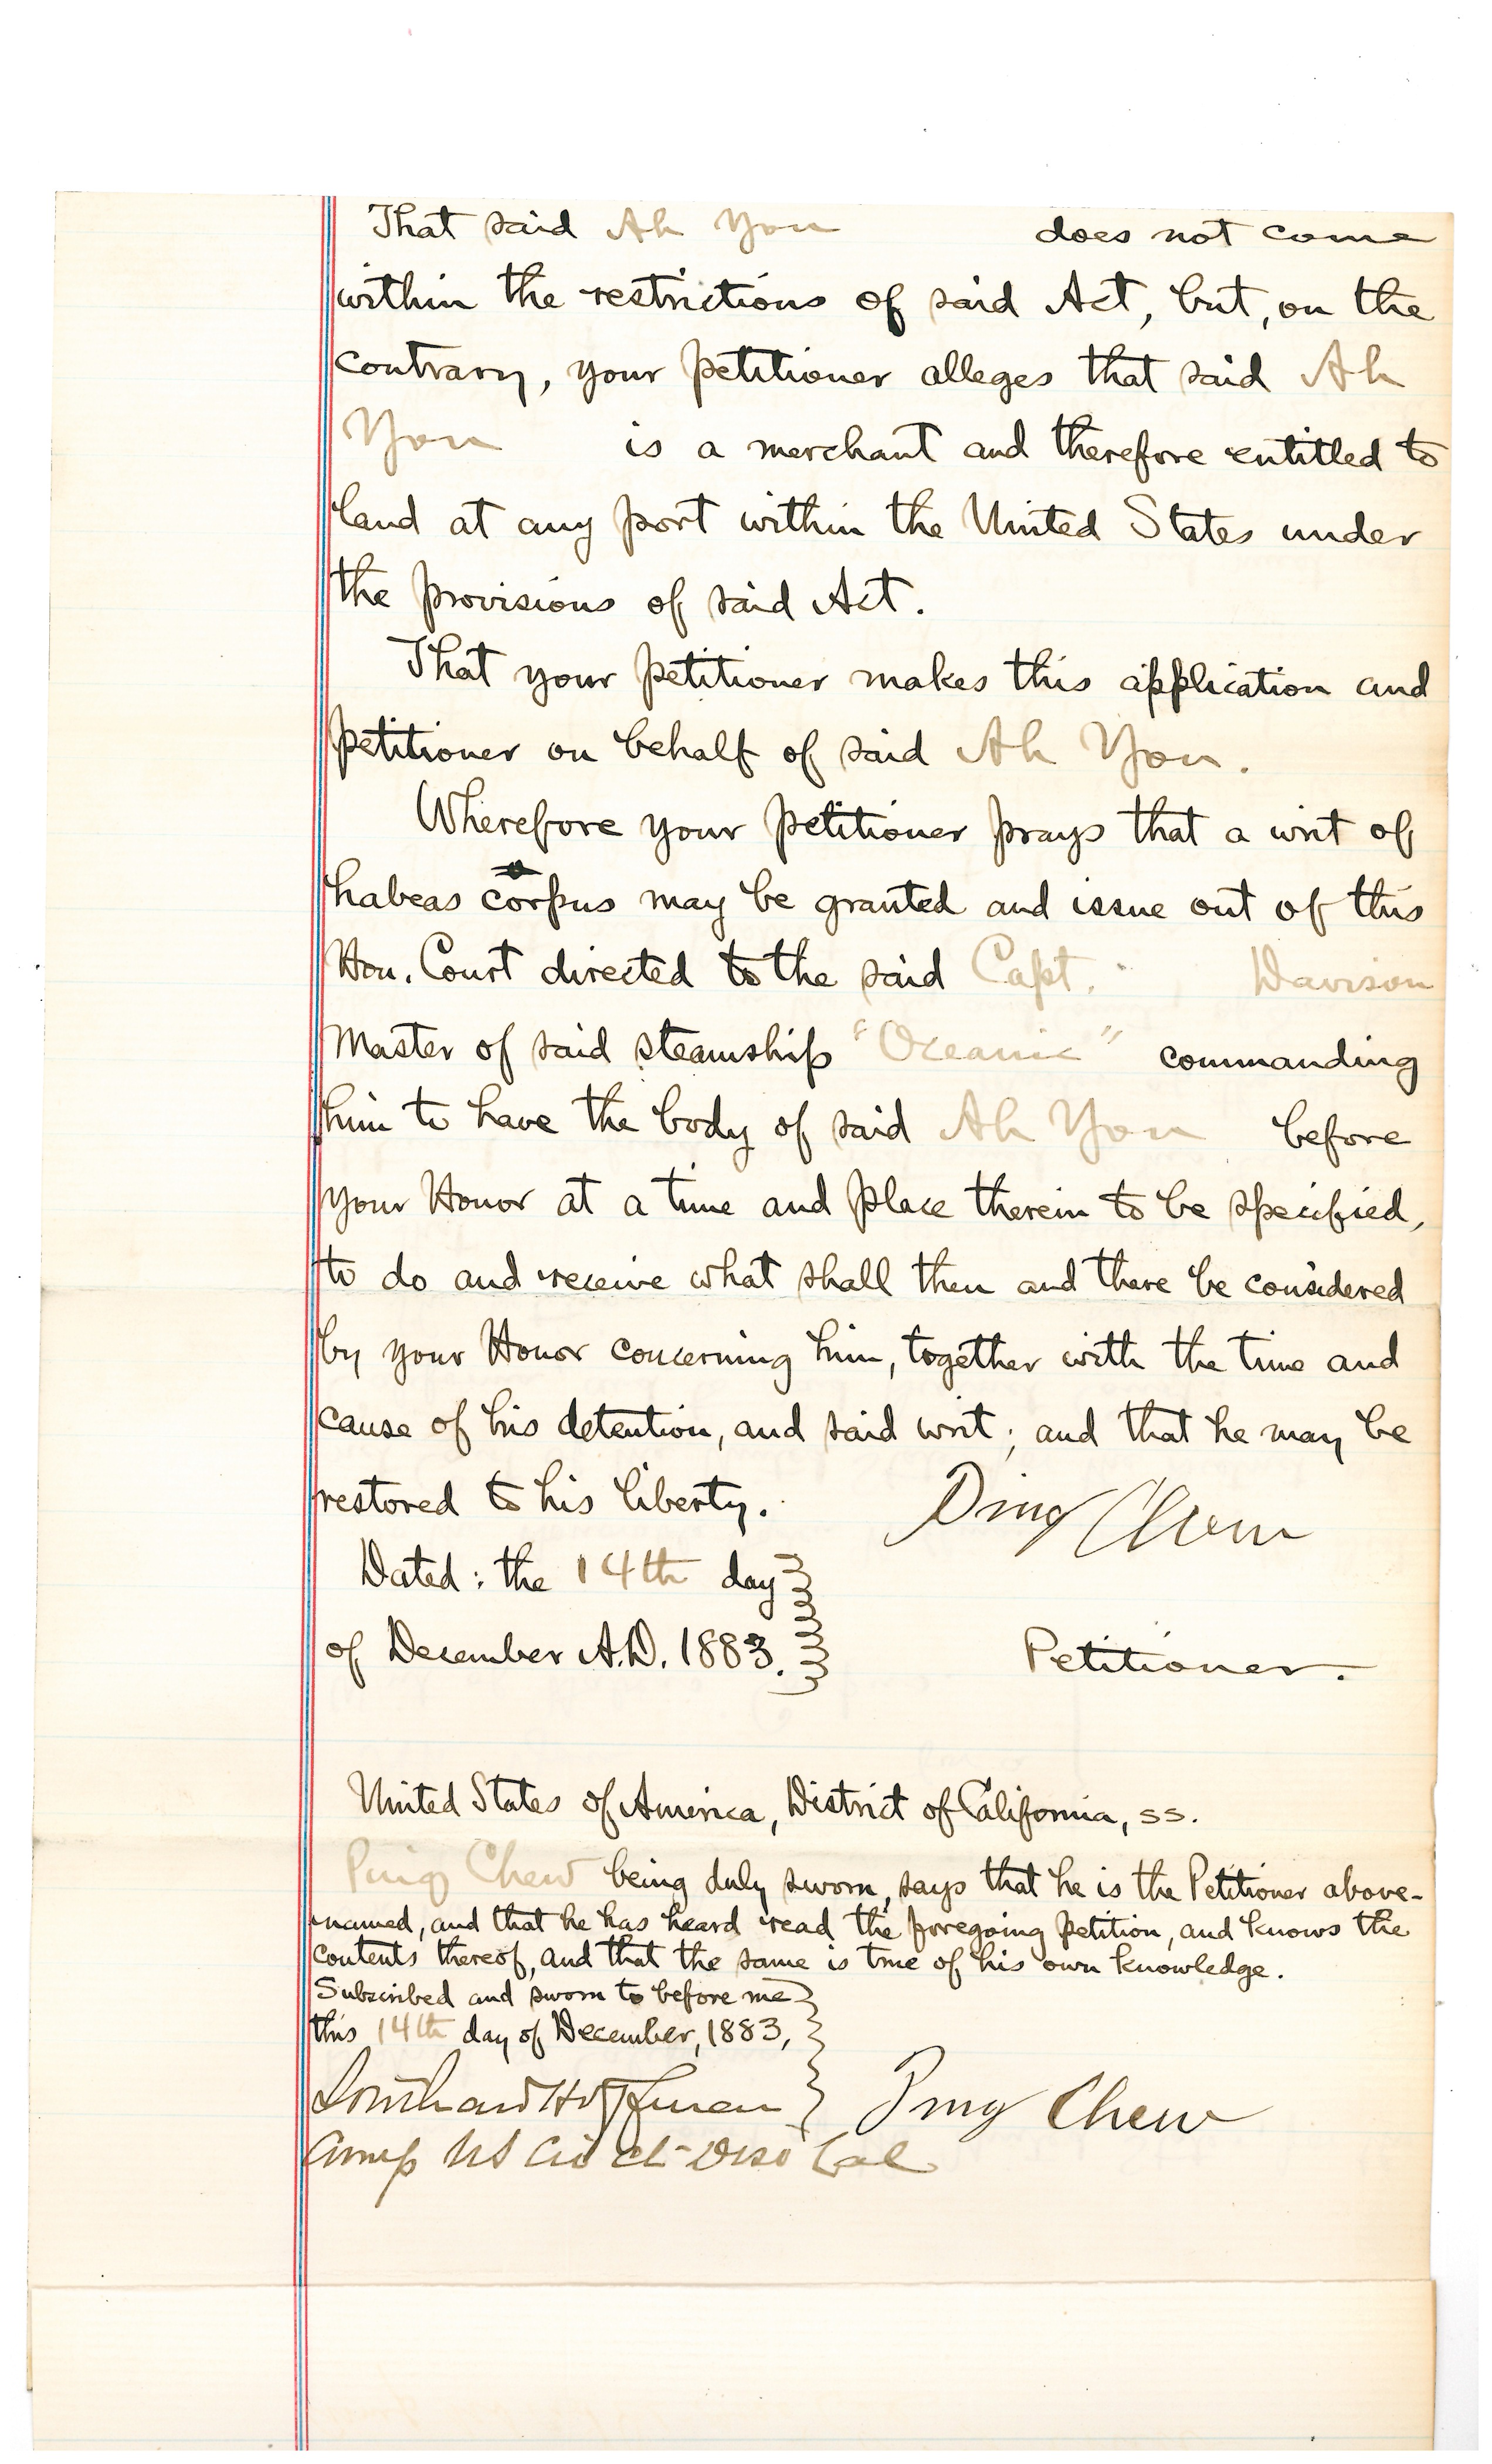 That said Ah You does not come
within the restrictions of said Act, but, on the
contrary, your petitioner alleges that said Ah
You is a merchant and therefore entitled to
land at any port within the United States under
the provisions of said Act.
That your petitioner makes this application and
petitioner on behalf of said Ah You.
Wherefore your petitioner prays that a writ of
habeas corpus may be granted and issue out of this
Hon. Court directed to the said Capt. Davison
Master of said steamship "Oceanic" commanding
him to have the body of said Ah You before
your Honor at a time and place therein to be specified,
to do and receive what shall then and there be considered
by your Honor concerning him, together with the time and
cause of his detention, and said writ; and that he may be
restored to his liberty.
Ping Chew
Dated: the 14th day
of December A.D. 1883.
Petitioner.
United States of America, District of California, ss.
Ping Chew being duly sworn, says that he is the Petitioner above-
named, and that he has heard read the foregoing petition, and knows the
contents thereof, and that the same is true of his own knowledge.
Subscribed and sworn to before me
this 14th day of December, 1883,
Southard Hoffman
Ping Chew
US Cir Ct Dist Cal